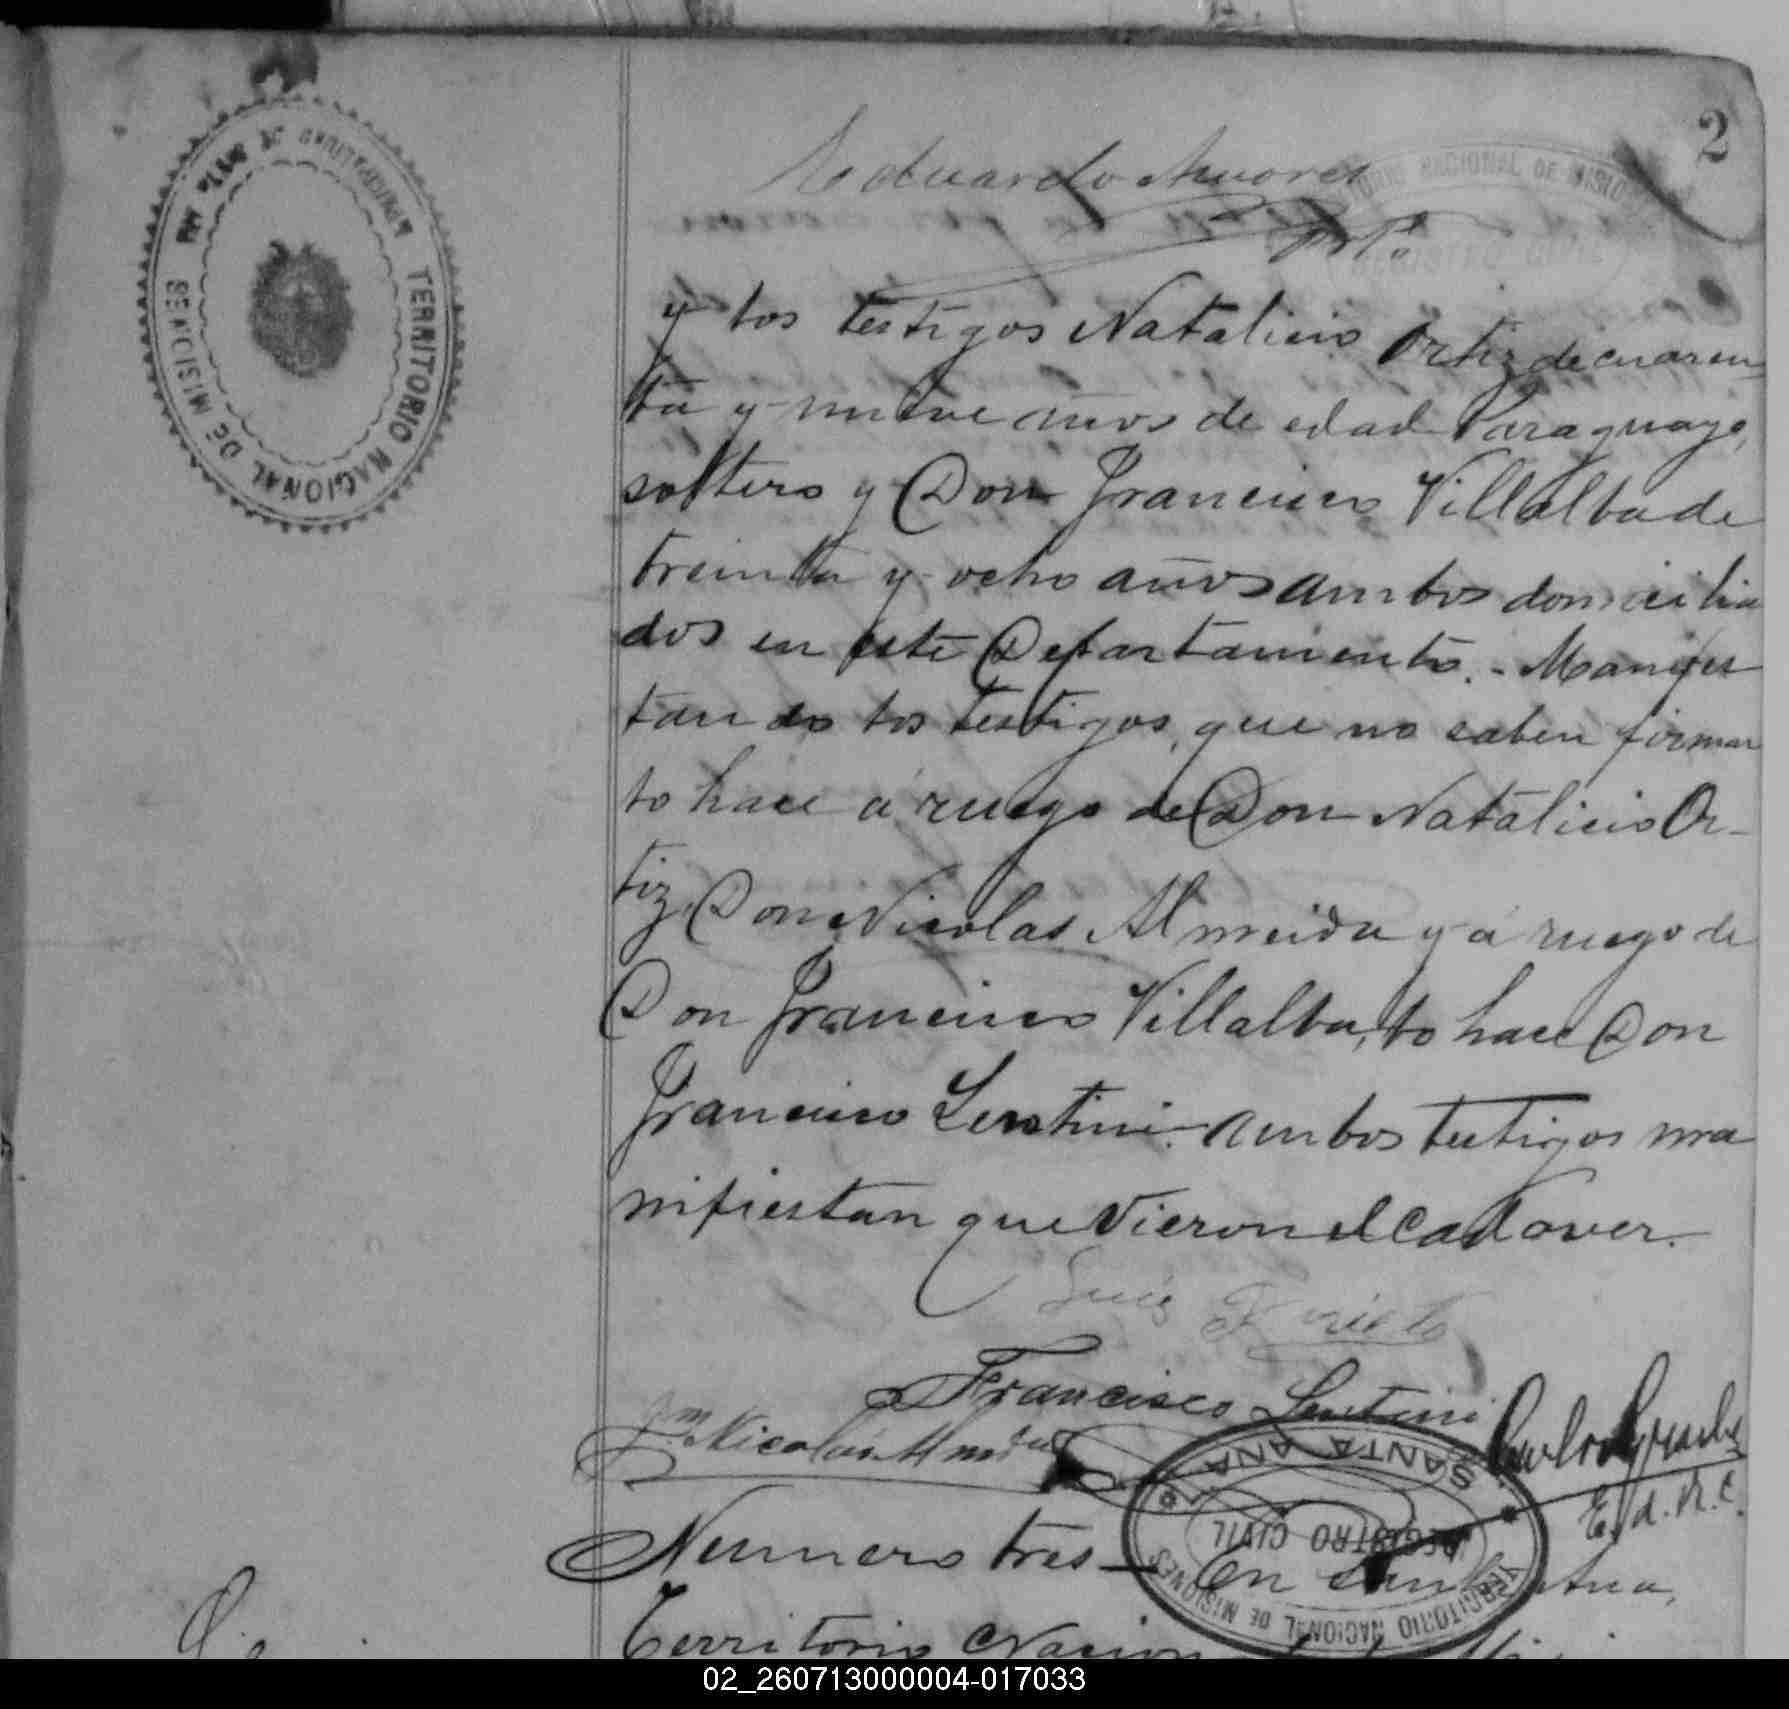 2
Eduardo Alvarez
TERRITORIO NACIONAL DE MISIONES
REGISTRO CIVIL
TERRITORIO NACIONAL DE MISIONES
y los testigos Natalicio Ortiz de cuaren
ta y nueve años de edad Paraguayo,
soltero y Don Francisco Villalba de
treinta y ocho años ambos domicilia
dos en este Departamento.- Manifes
tando los testigos, que no saben firmar
lo hace á ruego de Don Natalicio Or-
tiz, Don Nicolas Almeida y á ruego de
Don Francisco Villalba, lo hace Don
Francisco Lentini. Ambos testigos ma
nifiestan que vieron el cadaver.
Luis
Francisco Lentini
Nicolás Almeida
E. d. R. C.
SANTA ANA
REGISTRO CIVIL
TERRITORIO NACIONAL DE MISIONES
Numero tres— En Santa Ana,
Territorio Nacion
02_260713000004-017033